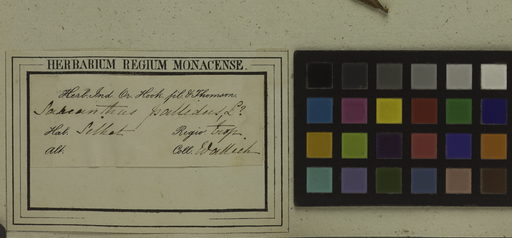 HERBARIUM REGIUM MONACENSE.
Herb. Ind. Or. Hook. fil. & Thomson.
Sarcanthus pallidus, L.
Hab. Silhet Regio trop.
Alt. Coll. Wallich